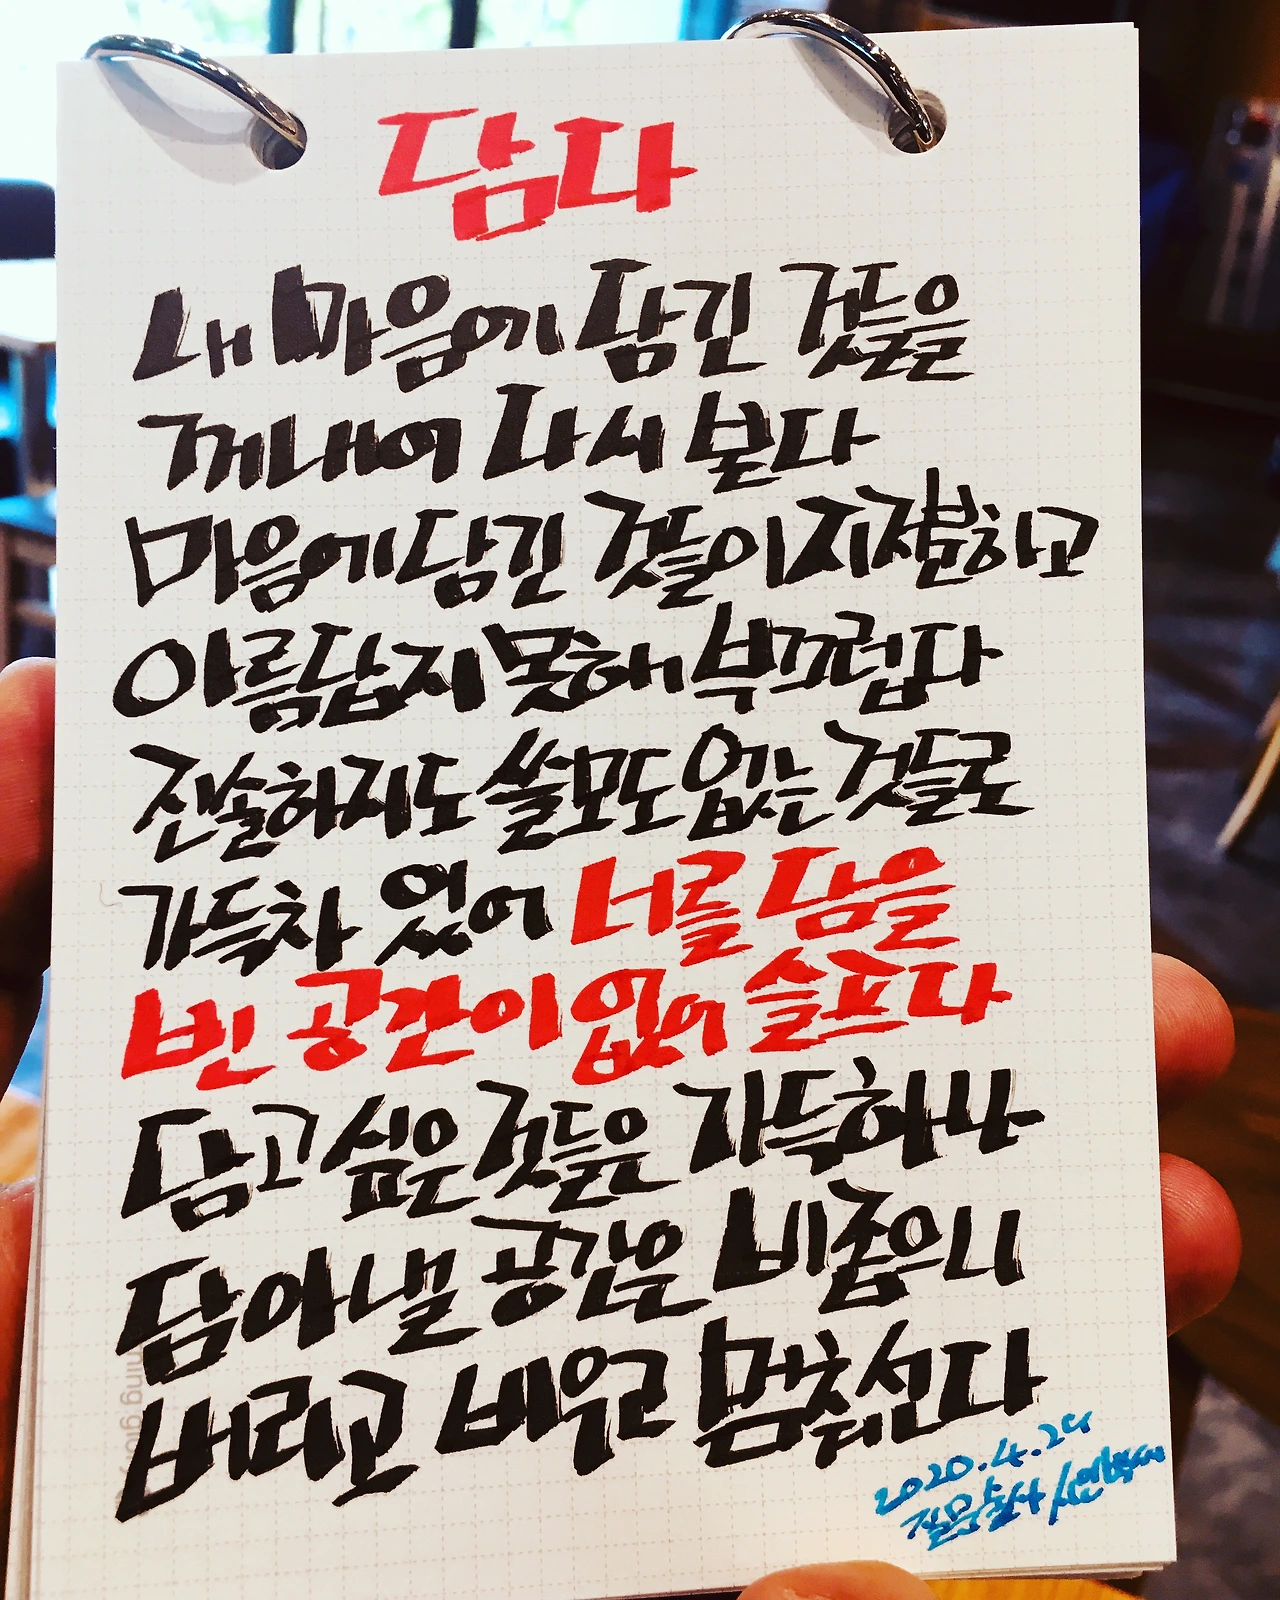 담다
내 마음에 담긴 것들을
꺼내어 다시 본다
마음에 담긴 것들이 지저분하고
아름답지 못해 부끄럽다
진솔하지도 쓸모도 없는 것들로
가득차 있어 너를 담을
빈 공간이 없어 슬프다
담고 싶은 것들은 가득하나
담아낼 공간은 비좁으니
버리고 비우고 멈춰선다
2020.4.29
질문술사